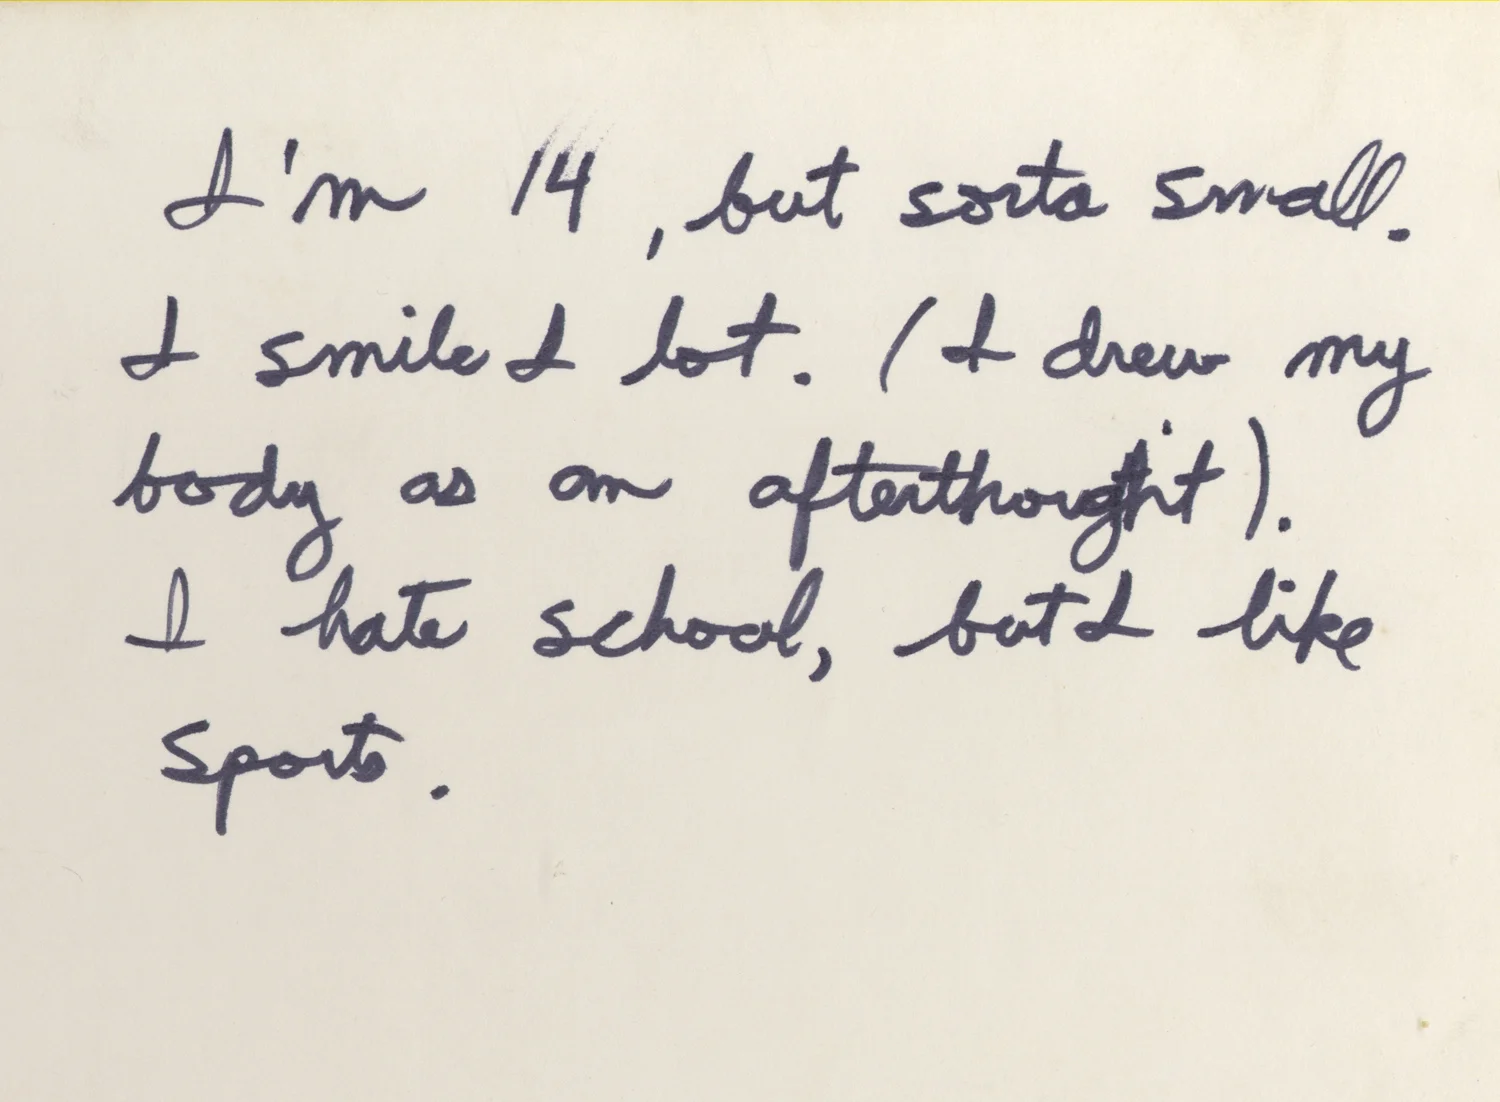 I'm 14, but sorta small.
I smile I lot. (I drew my
body as an afterthought).
I hate school, but I like
sports.